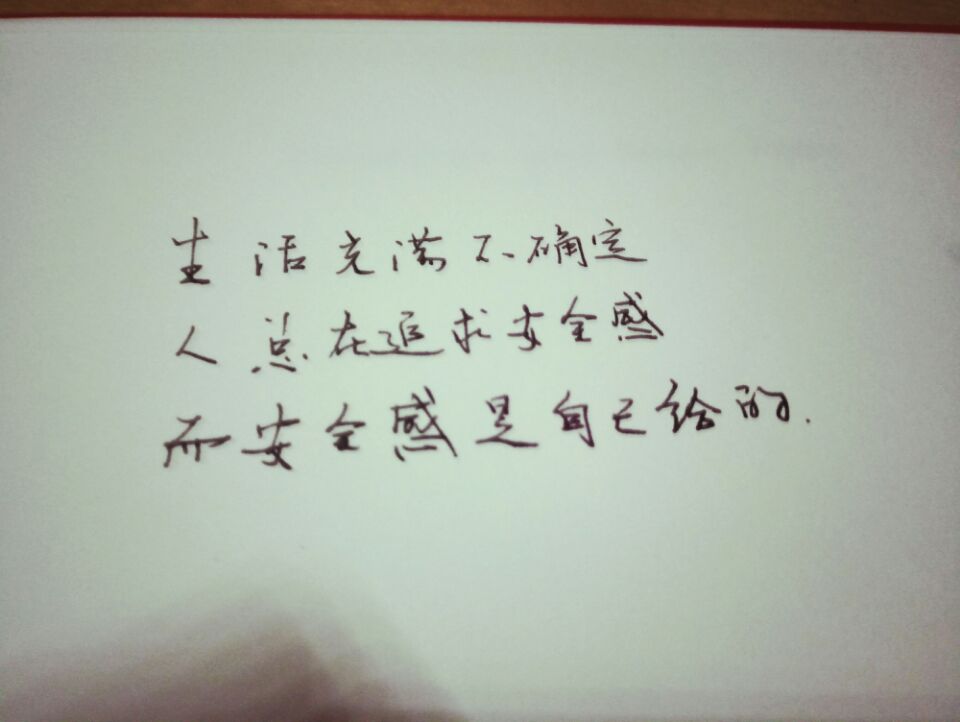 生活充满不确定
人总在追求安全感
而安全感是自己给的.